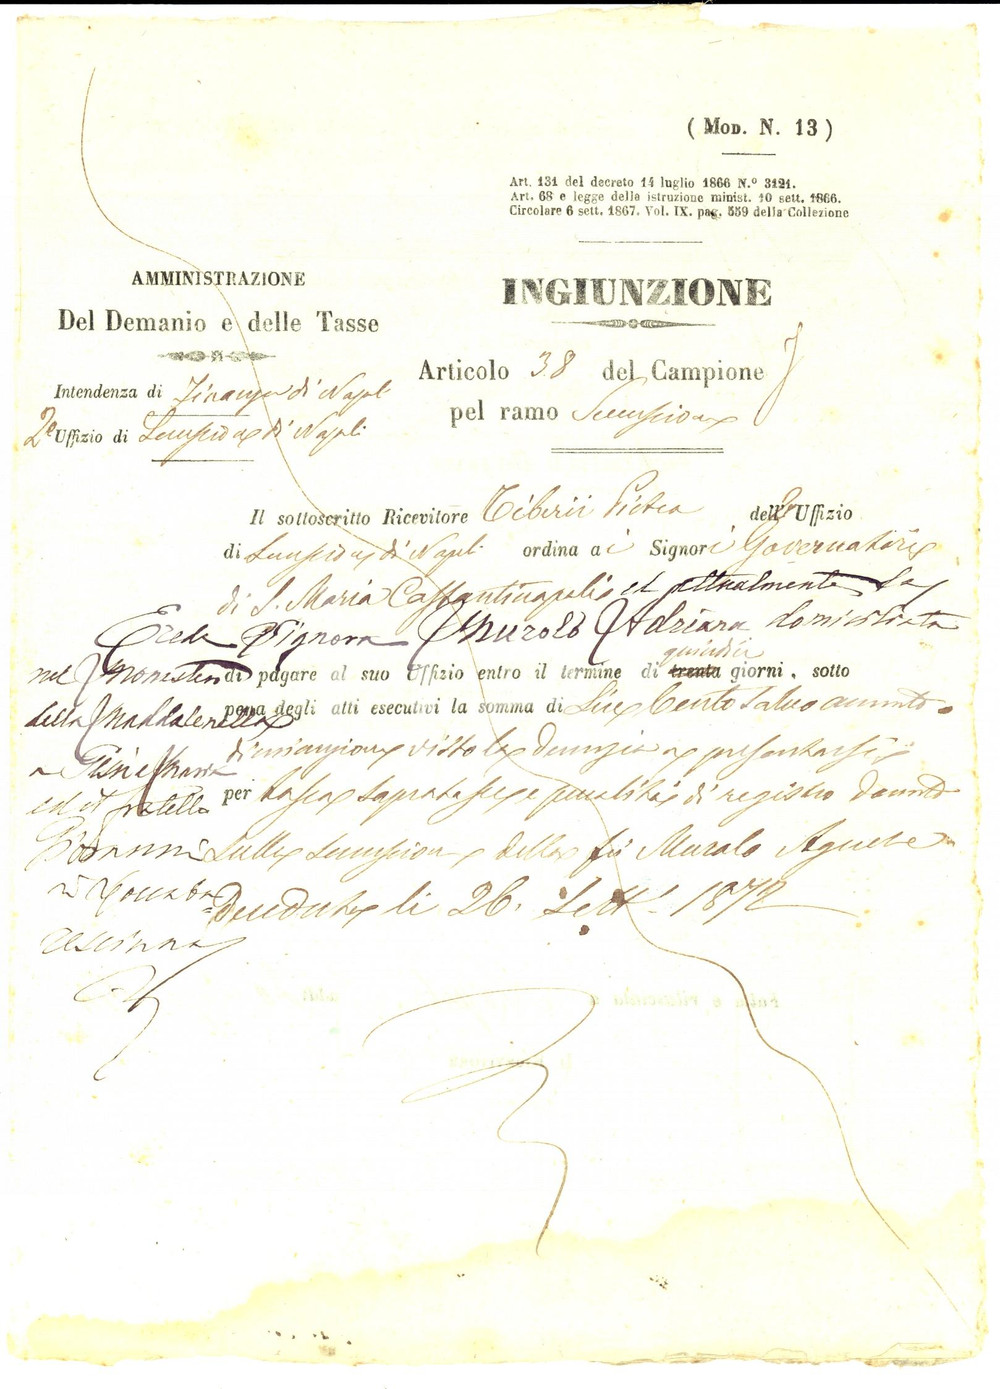 ( MOD. N. 13 )
Art. 131 del decreto 14 luglio 1866 N.º 3121.
Art. 68 e legge della istruzione minist. 10 sett. 1866.
Circolare 6 sett. 1867. Vol. IX. pag. 559 della Collezione
AMMINISTRAZIONE
Del Demanio e delle Tasse
Intendenza di Finanza di Napoli
2º Uffizio di Successione di Napoli
INGIUNZIONE
Articolo 38 del Campione
pel ramo Successione
Il sottoscritto Ricevitore Tiberii Pietro dell 2º Uffizio
di Successione di Napoli ordina ai Signori Governatori
di S. Maria Costantinopoli ed attualmente la
Erede Signora Murolo Adriana domiciliata
nel Monastero di pagare al suo Uffizio entro il termine di trenta quindici giorni, sotto
della Maddalenella pena degli atti esecutivi la somma di Lire Cento salvo aumento o
diminuzione visto la denunzia a presentarsi
a Gesù e Maria
ed il fratello per tassa sopratassa e penalità di registro dovuto
Giovanni sulla successione della fu Murolo Agnese
deceduta li 26. Sett. 1872